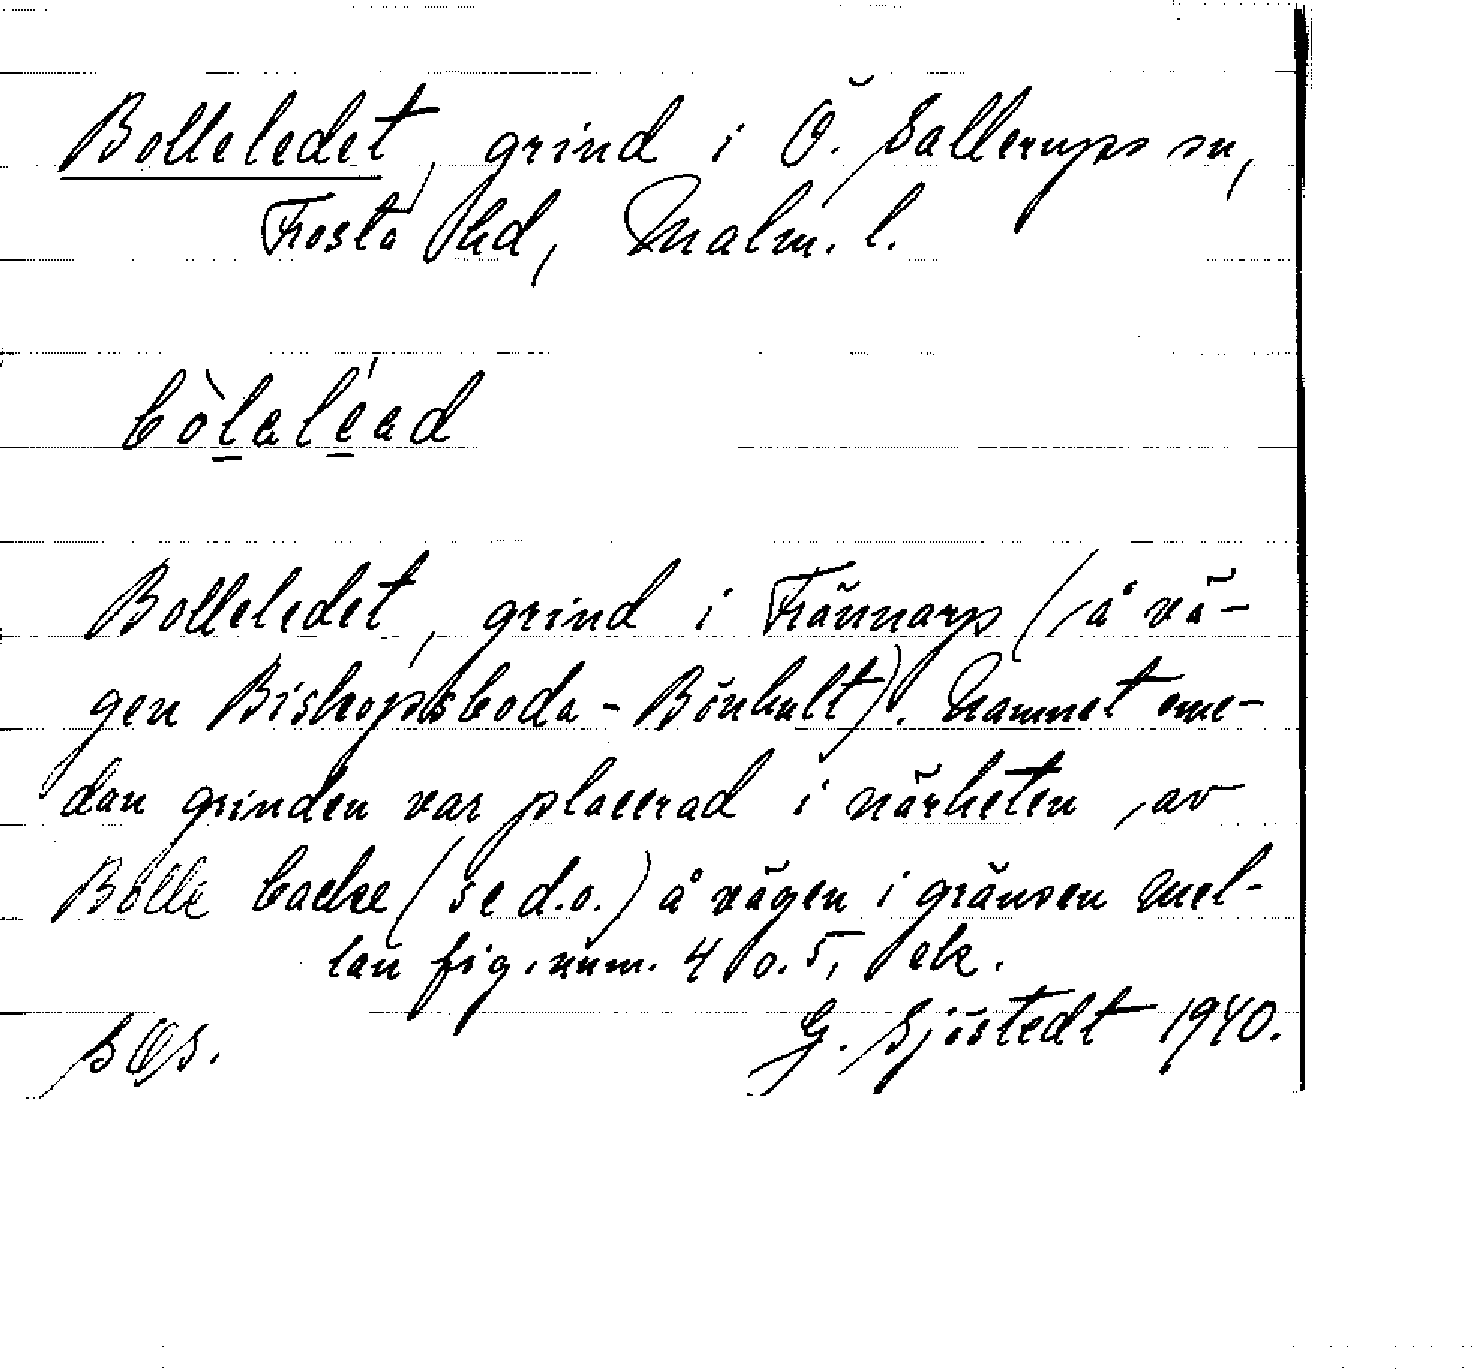 Bolleledet, grind i Ö. Sallerups sn,
Frosta hd, Malm. l.
bòlaléad
Bolleledet, grind i Frännarp (å vä-
gen Biskopsboda - Bönhult). Namnet eme-
dan grinden var placerad i närheten av
Bolle backe (se d.o.) å vägen i gränsen mel-
lan fig. num. 4 o. 5, ek.
G. Sjöstedt 1940.